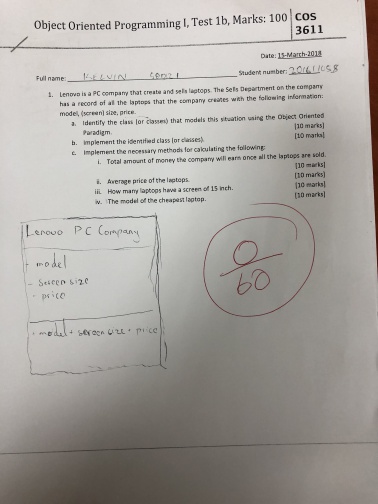 Object Oriented Programming I, Test 1b, Marks: 100 COS 3611
Date: 15-March-2018
Full name: KELVIN Student number:
1. Lenovo is a PC company that create and sells laptops. The Sells Department on the company
has a record of all the laptops that the company creates with the following information:
model, (screen) size, price.
a. Identify the class (or classes) that models this situation using the Object Oriented
Paradigm. [10 marks]
b. Implement the identified class (or classes). [10 marks]
c. Implement the necessary methods for calculating the following:
i. Total amount of money the company will earn once all the laptops are sold.
[10 marks]
ii. Average price of the laptops. [10 marks]
iii. How many laptops have a screen of 15 inch. [10 marks]
iv. The model of the cheapest laptop. [10 marks]
Lenovo PC Company
+ model
- screen size
- price
+ model + screen size + price
0
60